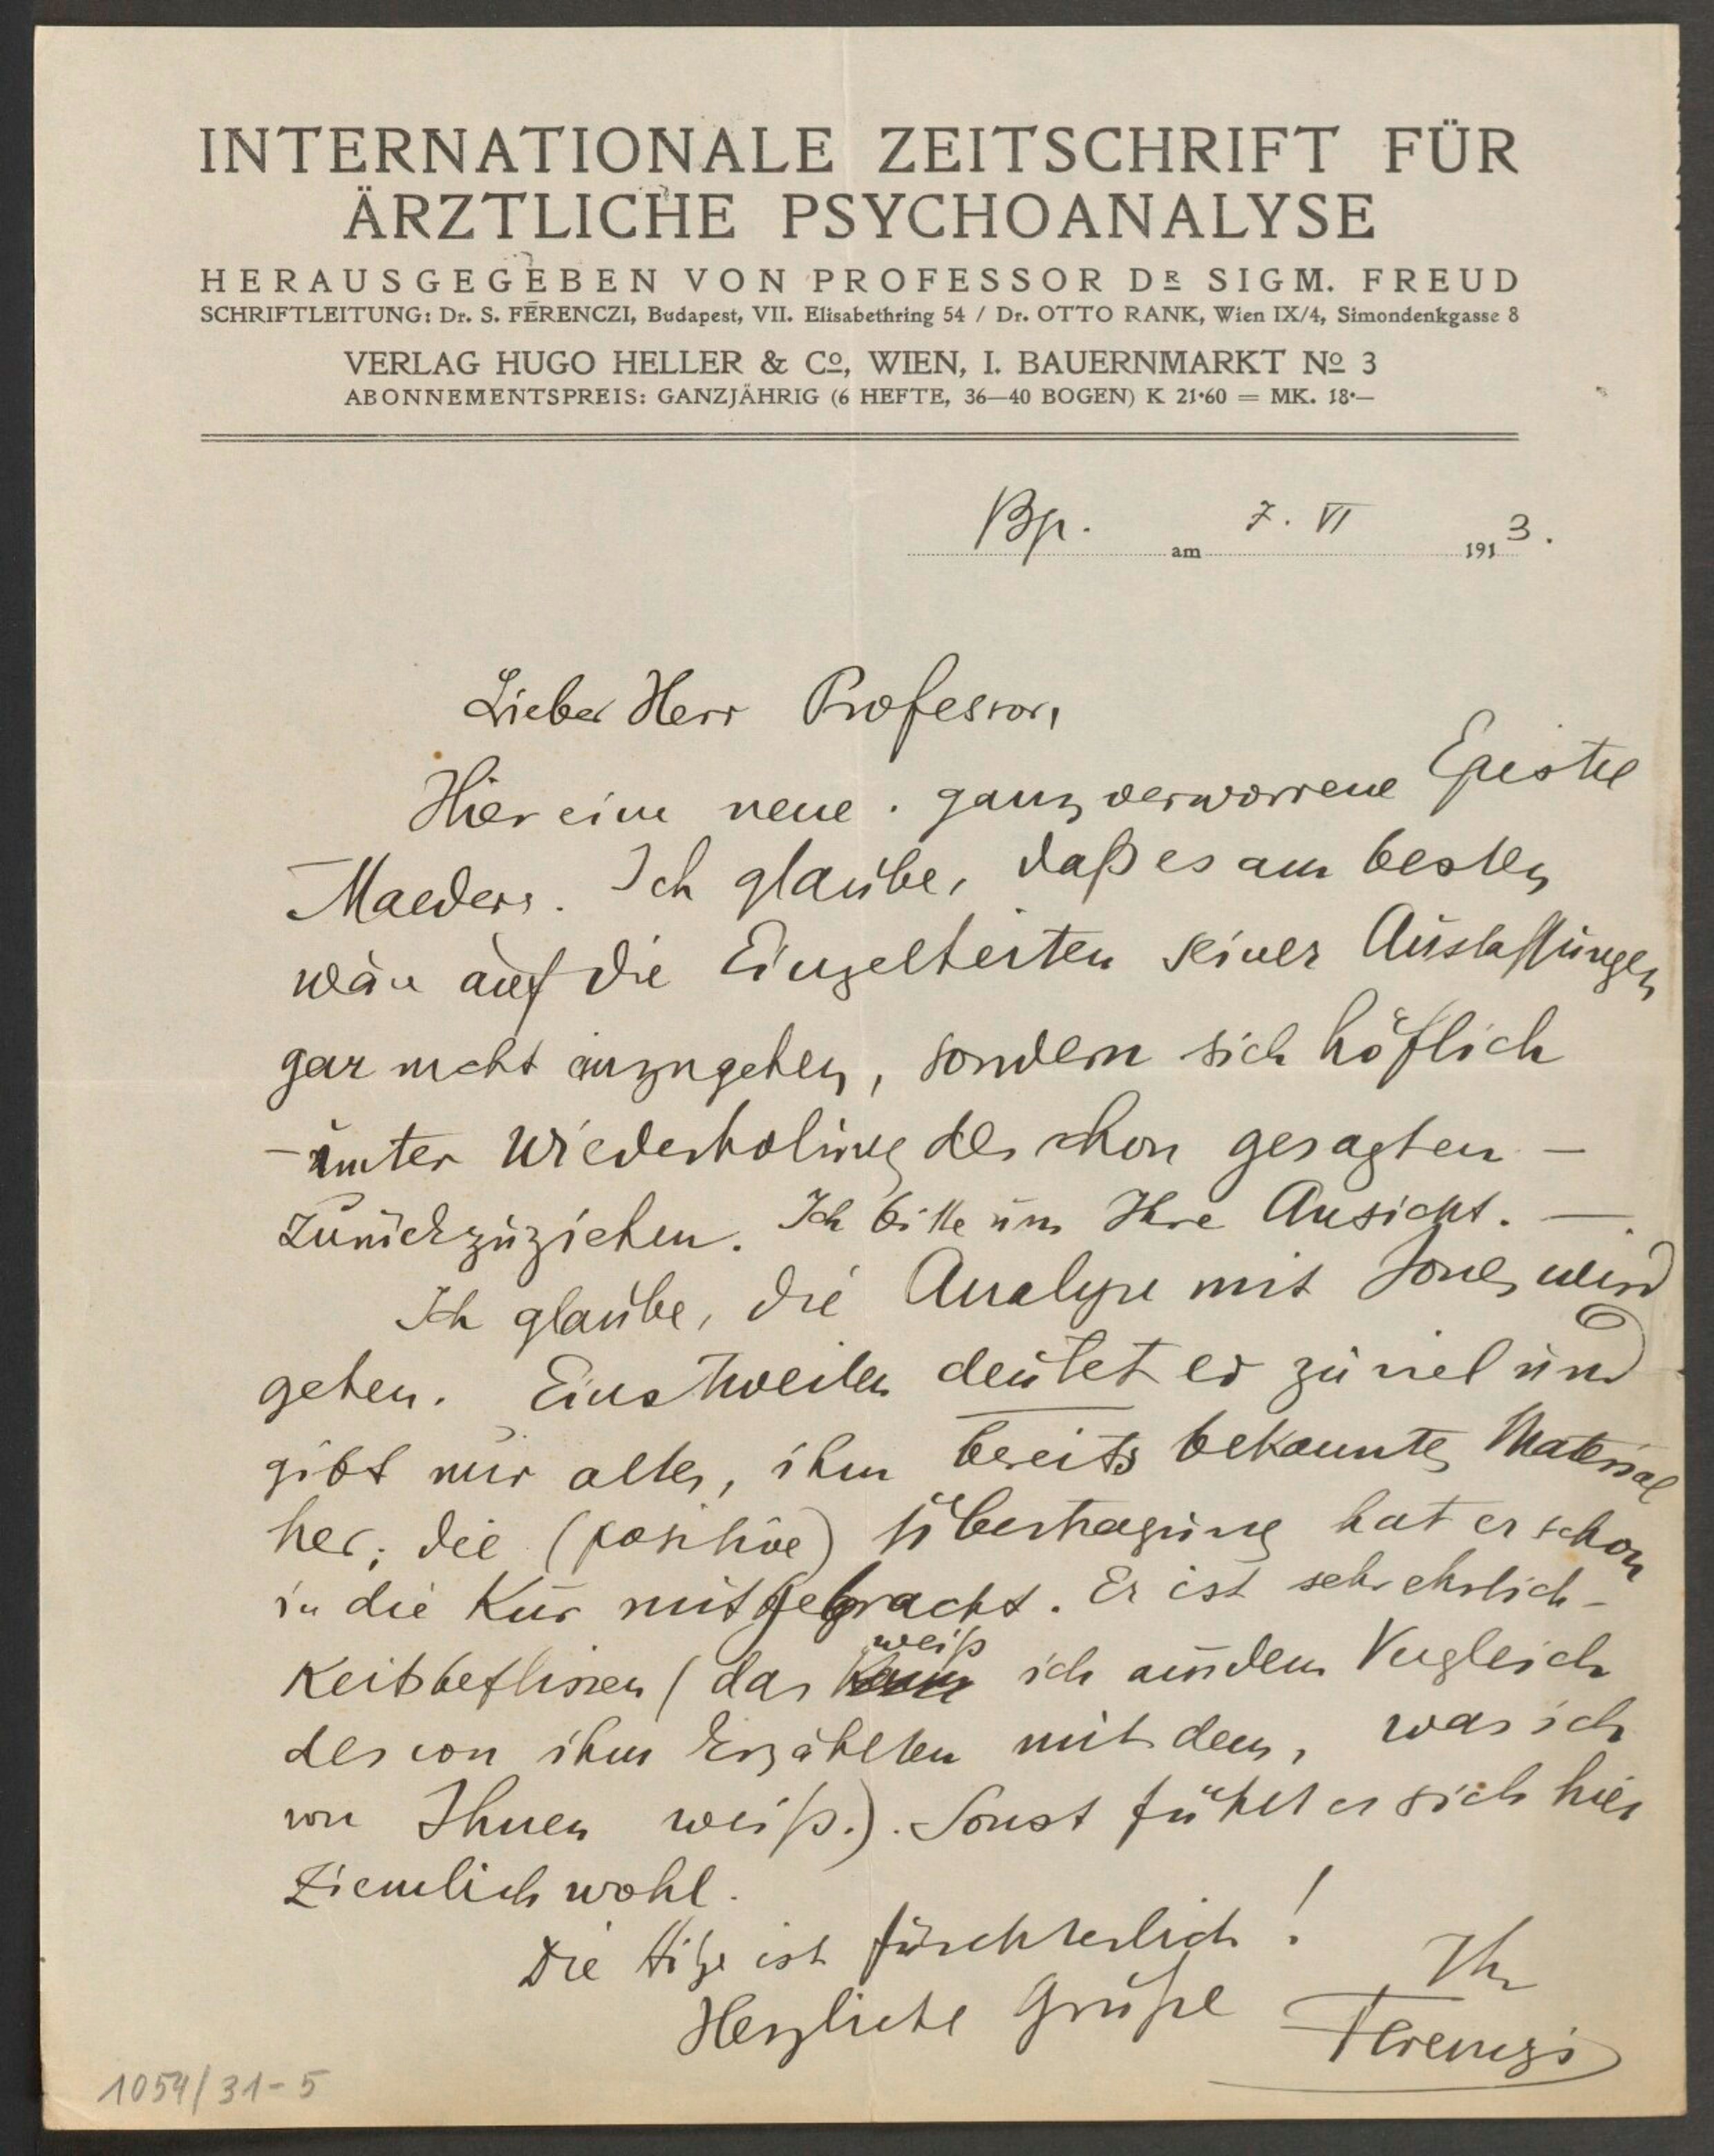 INTERNATIONALE ZEITSCHRIFT FÜR
ÄRZTLICHE PSYCHOANALYSE
HERAUSGEGEBEN VON PROFESSOR DR SIGM. FREUD
SCHRIFTLEITUNG: Dr. S. FERENCZI, Budapest, VII. Elisabethring 54 / Dr. OTTO RANK, Wien IX/4, Simondenkgasse 8
VERLAG HUGO HELLER & Co, WIEN, I. BAUERNMARKT No 3
ABONNEMENTSPREIS: GANZJÄHRIG (6 HEFTE, 36—40 BOGEN) K 21·60 = MK. 18·—
Bp. am 7. VI 1913.
Lieber Herr Professor,
Hier eine neue. ganz verworrene Epistel
Maeders. Ich glaube, daß es am besten
wäre auf die Einzelheiten seiner Auslassungen
gar nicht einzugehen, sondern sich höflich
– unter Wiederholung des schon gesagten –
zurückzuziehen. Ich bitte um Ihre Ansicht. —.
Ich glaube, die Analyse mit Jones wird
gehen. Einstweilen deutet er zu viel und
gibt nur altes, ihm bereits bekanntes Material
her; die (positive) Übertragung hat er schon
in die Kur mitgebracht. Er ist sehr ehrlich-
keitsbeflissen (das weiß ich aus dem Vergleich
des von ihm Erzählten mit dem, was ich
von Ihnen weiß.). Sonst fühlt er sich hier
ziemlich wohl.
Die Hitze ist fürchterlich!
Herzliche Grüße Ihr
Ferenczi
1054/31-5